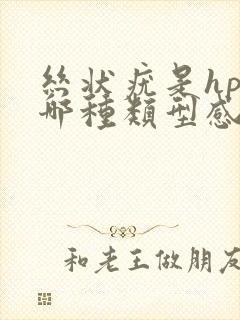 絲狀疣是hp
哪種類型感
和老王做朋友